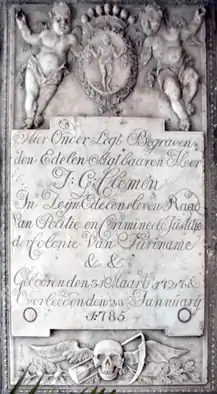 Hier Onder Legt Begraven
den Edelen Agtbaaren Heer
J: G: Clemen
In Zeijn Edeens leven Raad
Van Politie en Crimineele Justitie
der Colonie Van Suriname
& &
Gebooren den 31 Maart 1727 &
Overleeden den 28 Jannuarij
J:785